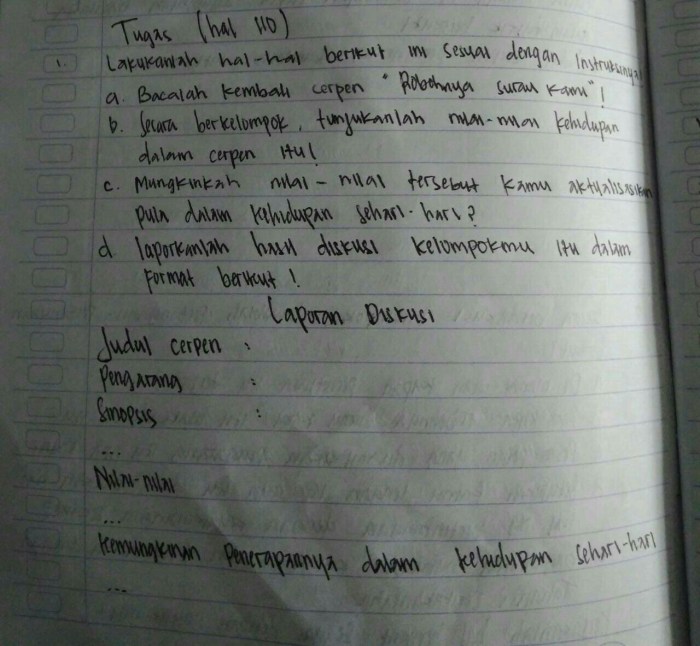 Tugas (hal 110)
1. Lakukanlah hal-hal berikut ini sesuai dengan Instruksinya
a. Bacalah kembali cerpen "Robohnya surau kami"!
b. Secara berkelompok, tunjukanlah nilai-nilai kehidupan
dalam cerpen itu!
c. Mungkinkah nilai-nilai tersebut kamu aktualisasikan
pula dalam kehidupan sehari-hari?
d laporkanlah hasil diskusi kelompokmu itu dalam
format berikut!
Laporan Diskusi
Judul cerpen :
Pengarang :
Sinopsis :
...
Nilai-nilai
...
Kemungkinan Penerapannya dalam kehidupan sehari-hari
...